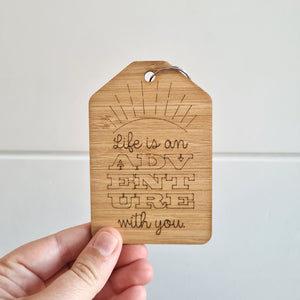 Life is an
ADV
ENT
URE
with you.